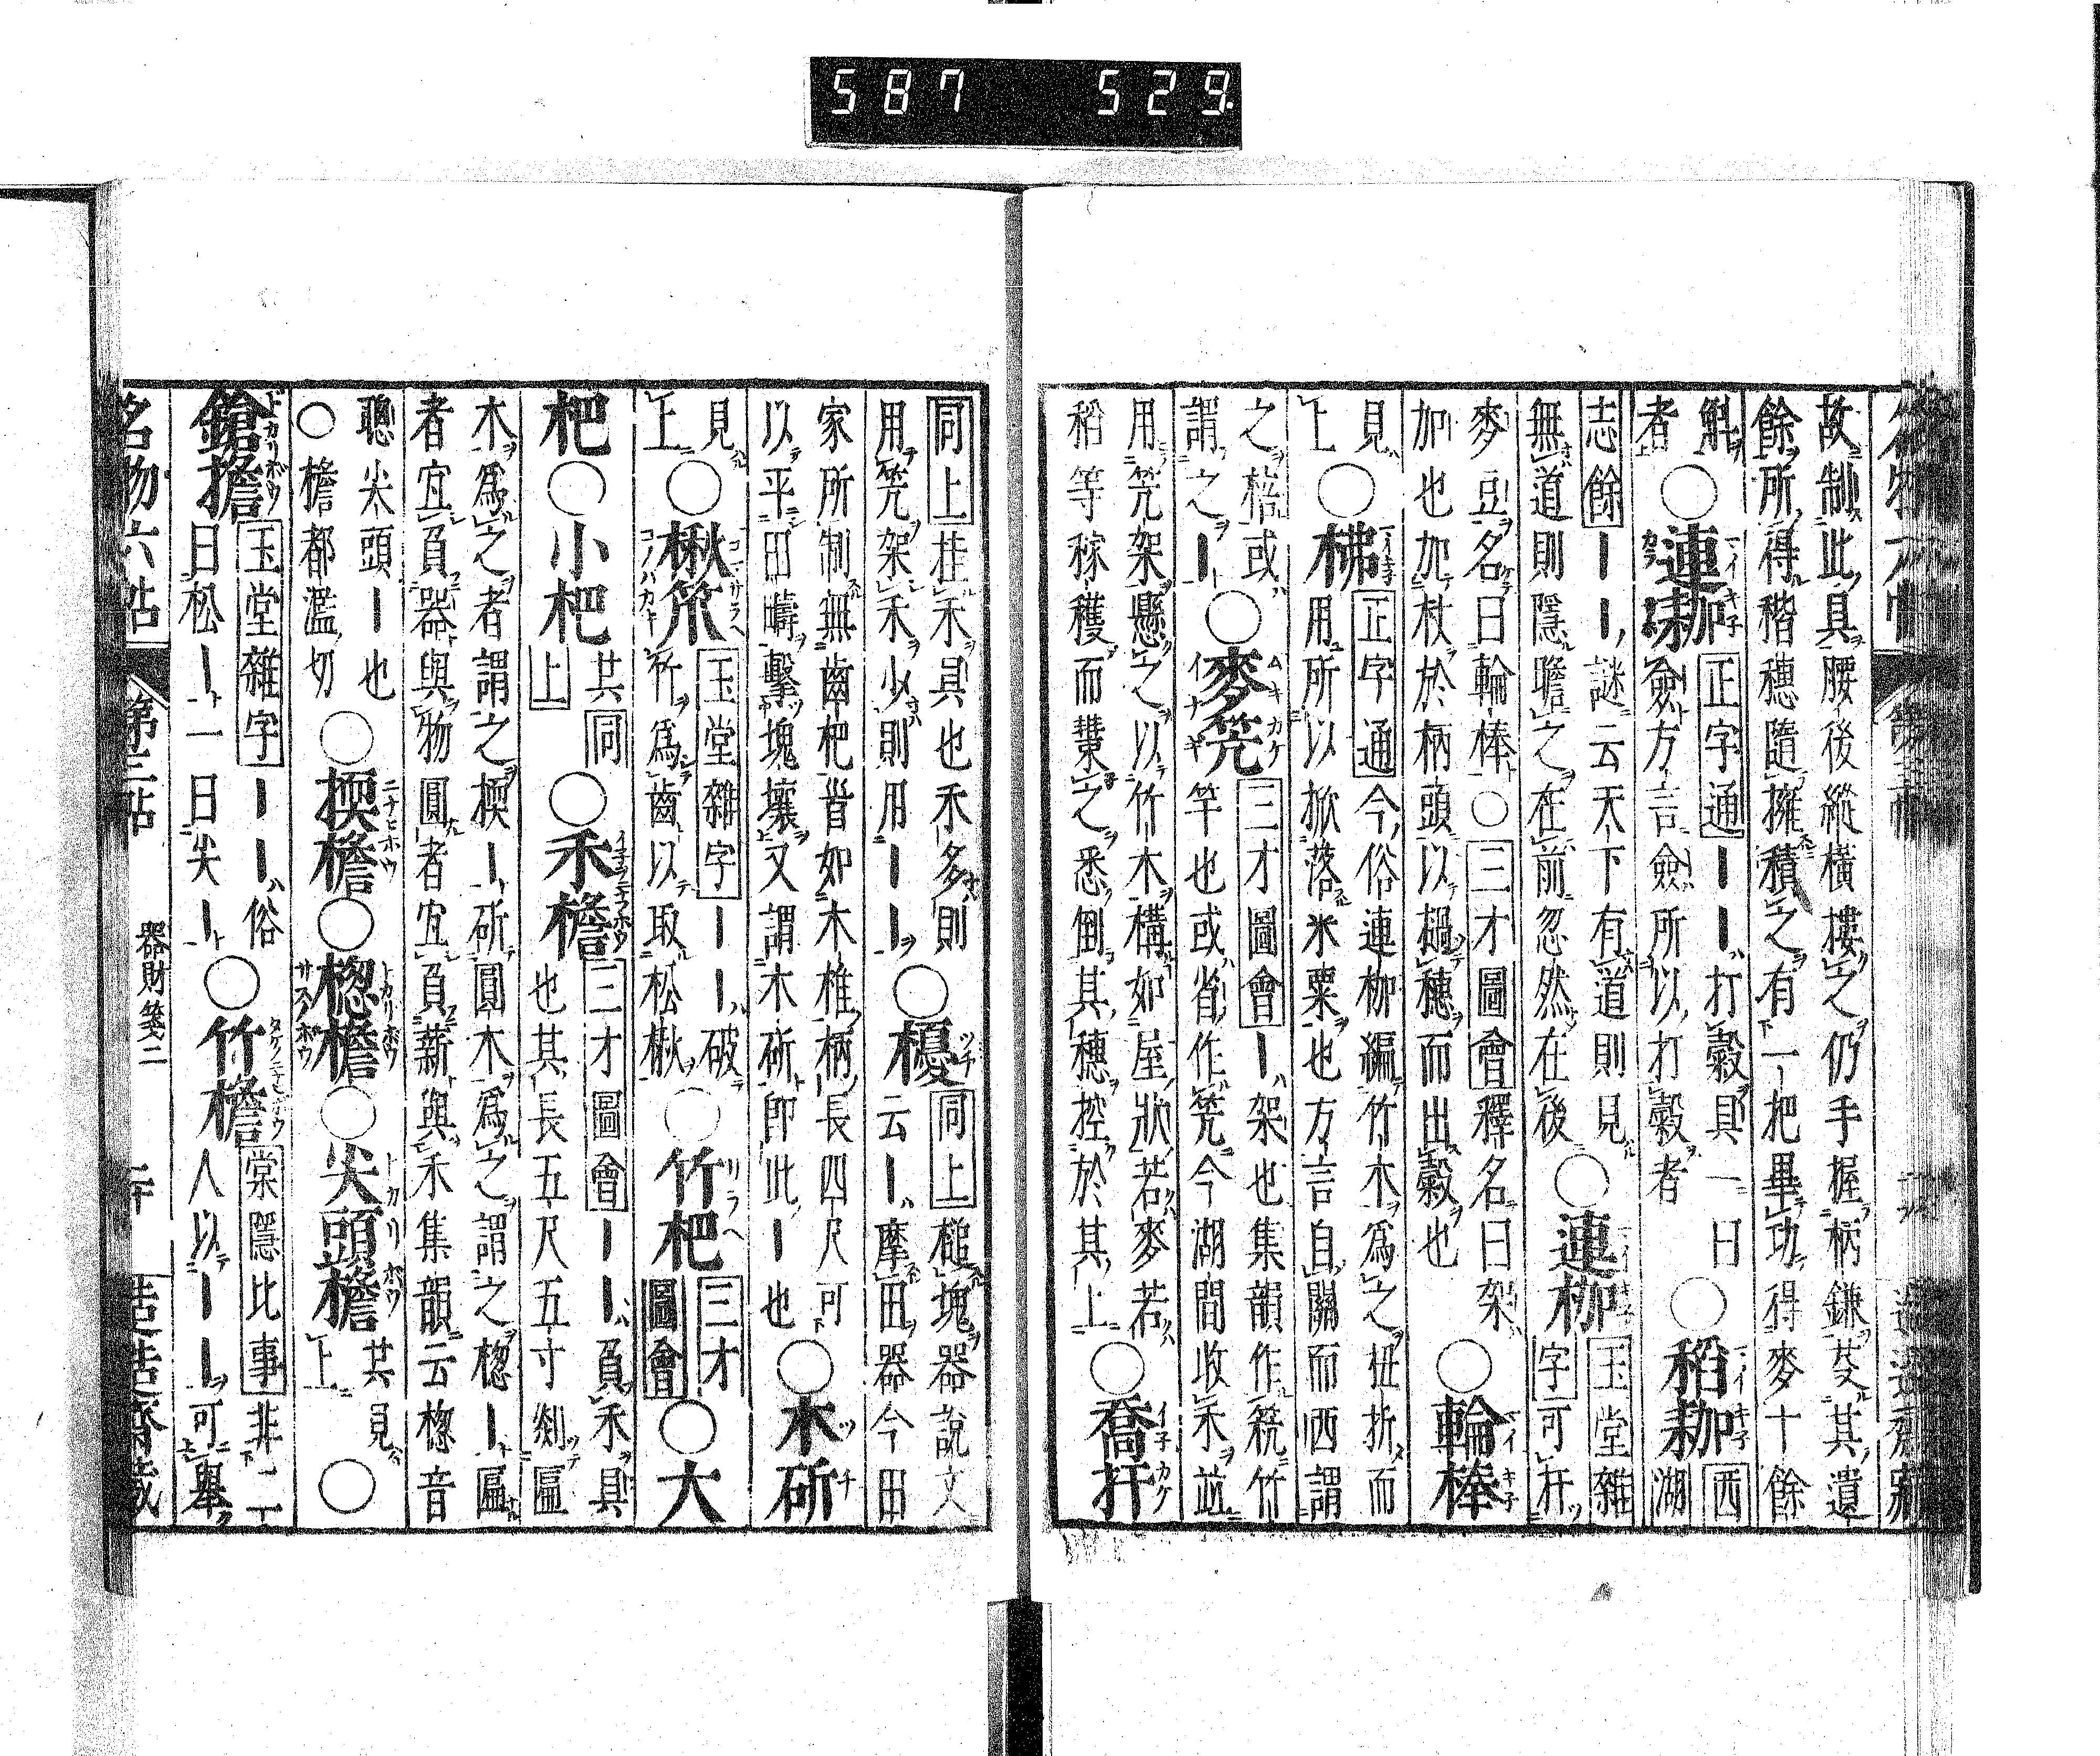 587 529
故制此具腰後縱橫摟之仍手握柄鎌芟其遺
餘所得稭穗隨擁積之有一把畢功得麥十餘
斛者○連耞 正字通 ーー打穀具一曰僉方言僉所以打穀者○稻耞 西湖
志餘 ーー謎云天下有道則見無道則隱瞻之在前忽然在後○連枷 玉堂雜字 可扞
麥豆名曰輪棒○ 三才圖會 釋名曰架加也加杖於柄頭以撾穗而出穀也○輪棒
見上○梻 正字通 今俗連枷編竹木爲之扭折而用所以掀落米粟也方言自關而西謂
之棓或謂之ー○麥笐 三才圖會 ー架也集韻作筦竹竿也或省作笐今湖間收禾並
用笐架懸之以竹木構如屋狀若麥若稻等稼穫而䅌之悉倒其穗控於其上○喬扞
同上 挂禾具也禾多則用笐架禾少則用ーー○櫌 同上 槌塊器說文云ー摩田器今田
家所制無齒杷首如木椎柄長四尺可以平田疇擊塊壤又謂木斫卽此ー也○木斫
見上○楸笊 玉堂雜字 ーー破竹爲齒以取松楸○竹杷 三才圖會 ○大
杷○小杷 共同上 ○禾檐 三才圖會 ーー負禾具也其長五尺五寸剡匾
木爲之者謂之楆ー斫圓木爲之謂之楤ー匾者宜負器與物圓者宜負薪與禾集韻云楤音
聰尖頭ー也○檐都濫切○楆檐○楤檐○尖頭檐 共見上○
鎗擔 玉堂雜字 ーー俗曰松ー一曰尖ー○竹檐 棠隱比事 非二人以ーー可舉
名物六帖 第三帖 器財箋二